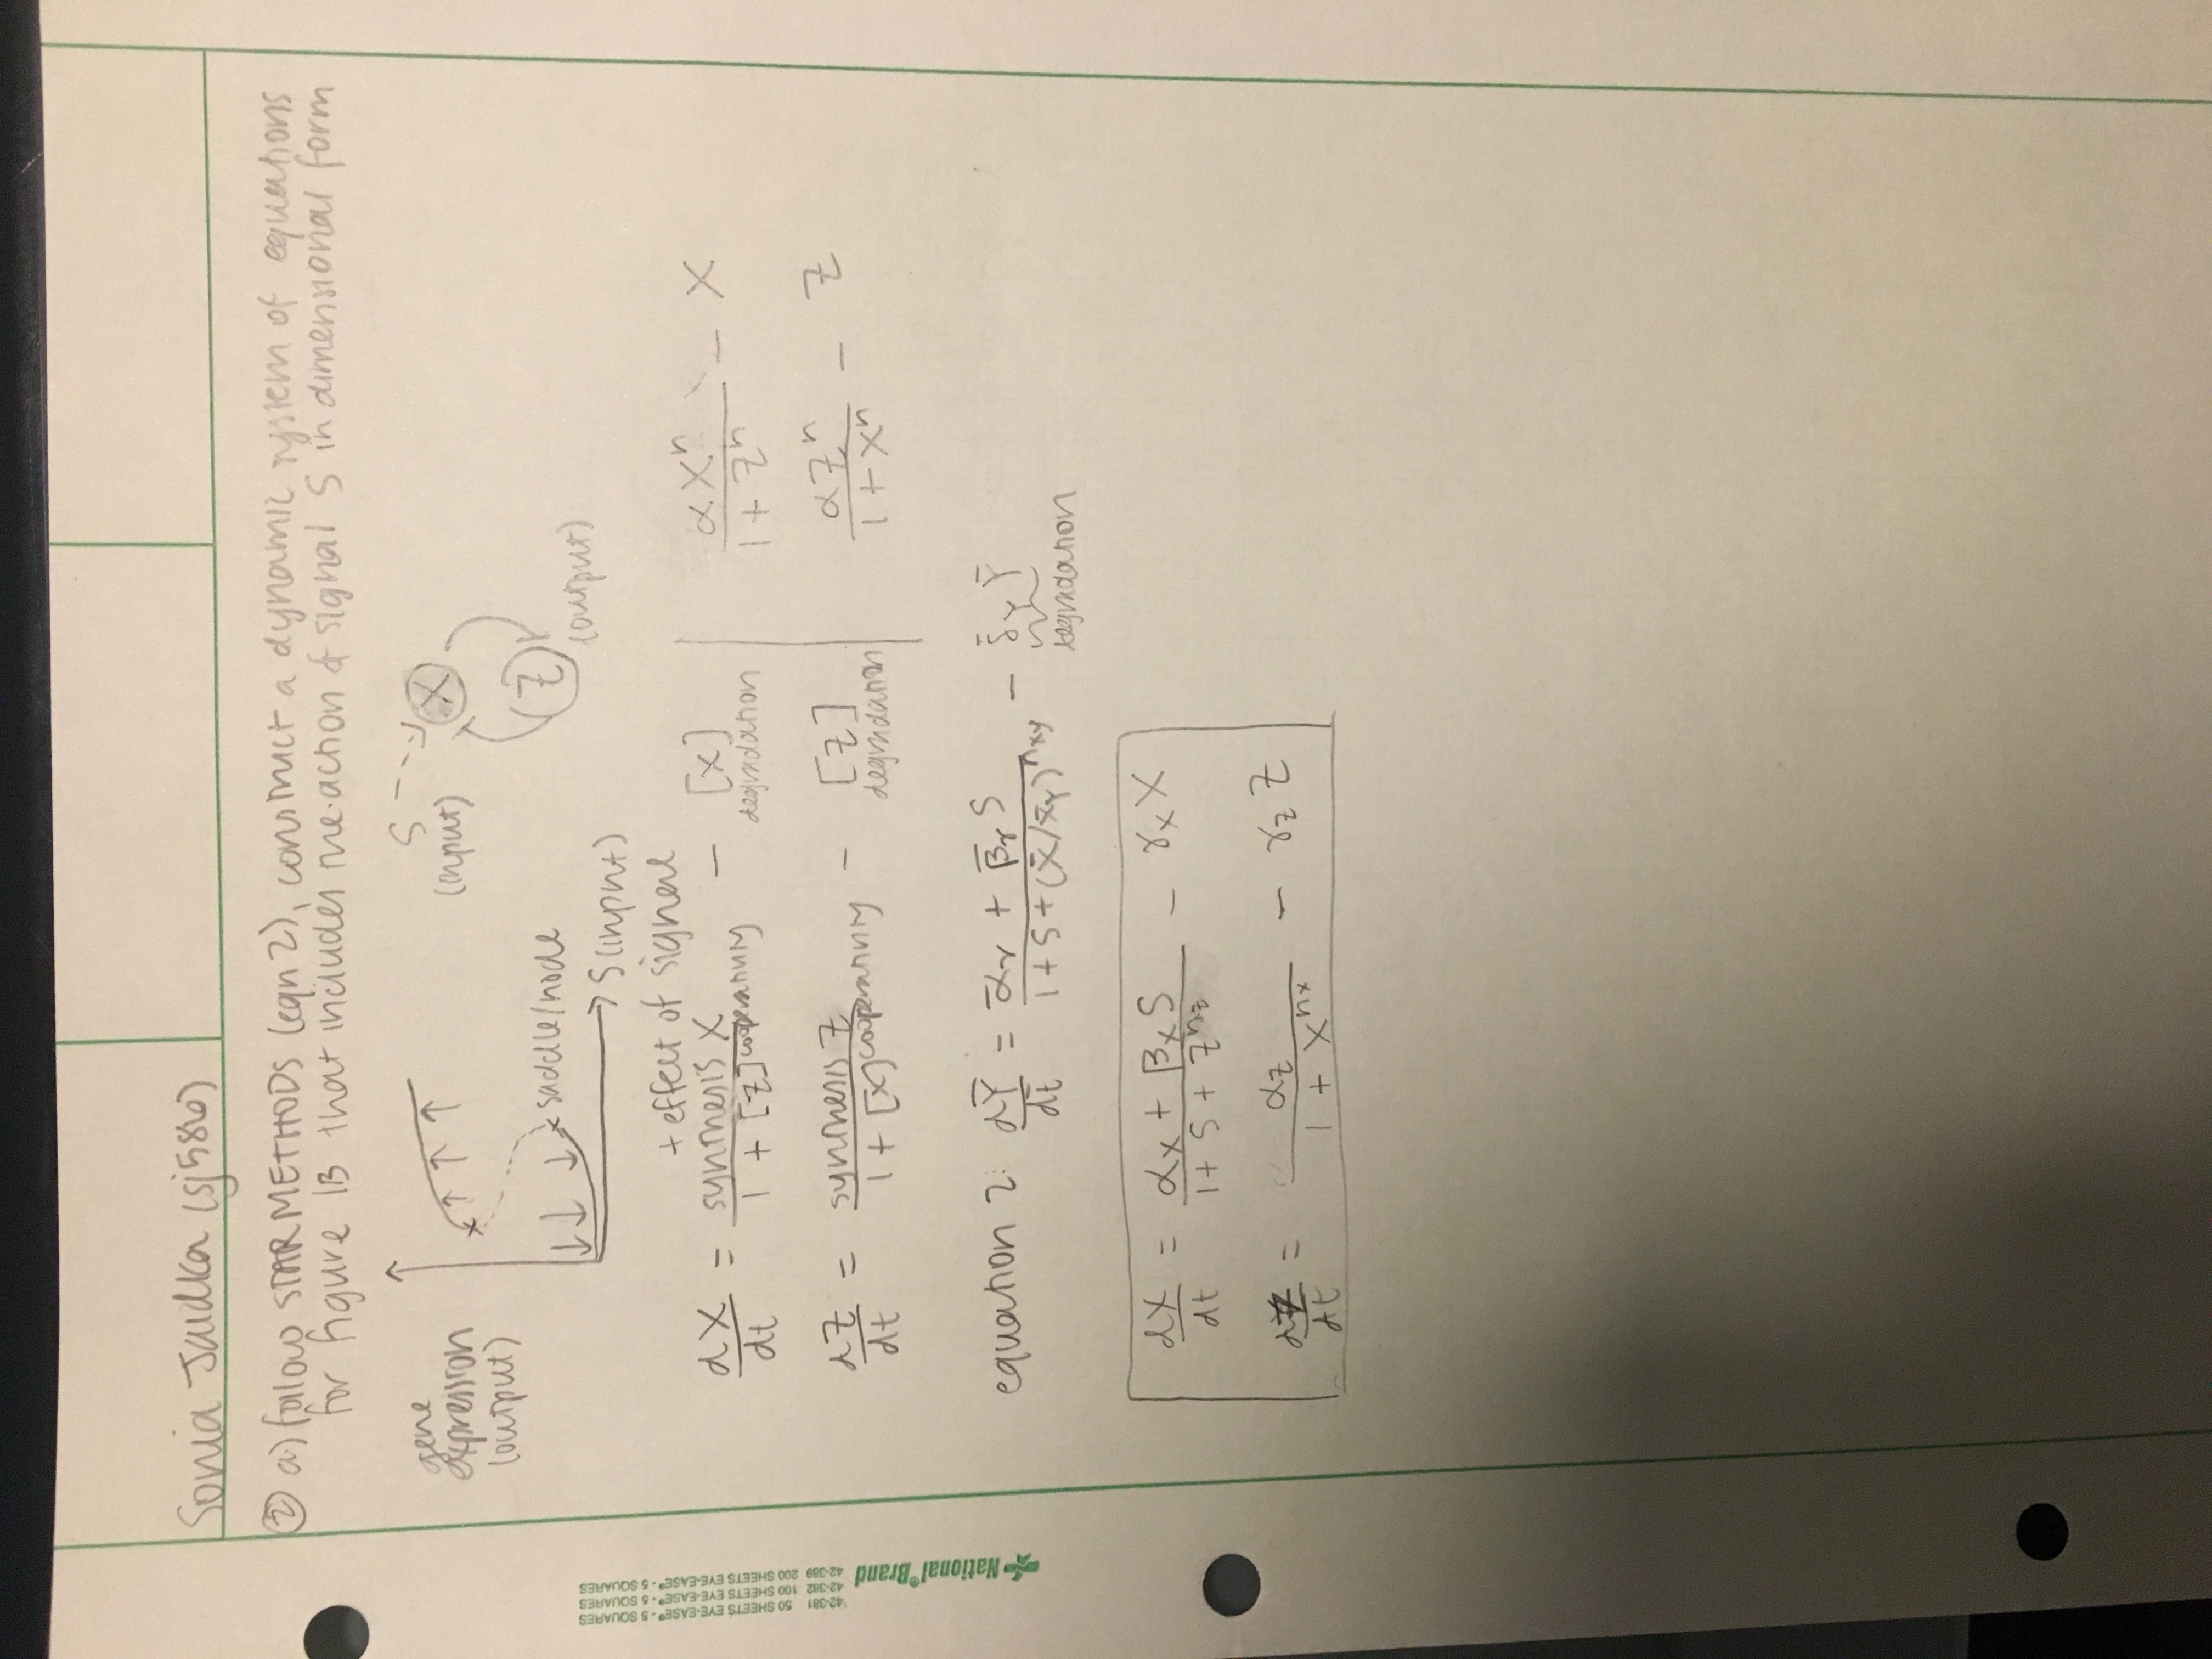 Sonia Jaidka (sj586)
② a.) follow STAR METHODS (eqn 2), construct a dynamic system of equations
for figure 1B that includes the action of signal S in dimensional form
gene
expression
(output)
saddle/node
S (input)
S
(input)
X
Z
(output)
+ effect of signal
dX/dt = synthesis X / (1 + [Z]^cooperativity) - [X] degradation | αX^n / (1 + Z^n) - X
dZ/dt = synthesis Z / (1 + [X]^cooperativity) - [Z] degradation | αZ^n / (1 + X^n) - Z
equation 2: dȲ/dt̄ = (ᾱ_Y + β̄_Y S) / (1 + S + (X̄/x̄_Y)^n_xy) - δ̄_Y Ȳ
degradation
dX/dt = (α_X + β_X S) / (1 + S + Z^n_z) - γ_X X
dZ/dt = α_Z / (1 + X^n_x) - γ_Z Z
42-381 50 SHEETS EYE-EASE® - 5 SQUARES
42-382 100 SHEETS EYE-EASE® - 5 SQUARES
42-389 200 SHEETS EYE-EASE® - 5 SQUARES
National®Brand